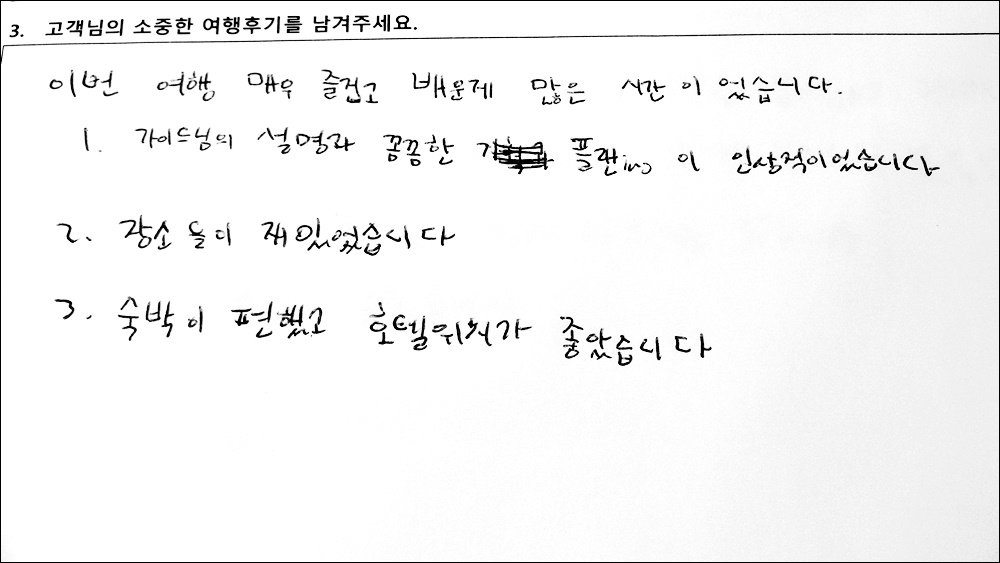 3. 고객님의 소중한 여행후기를 남겨주세요.
이번 여행 매우 즐겁고 배운제 많은 시간이었습니다.
1. 가이드님의 설명과 꼼꼼한 플랜ing이 인상적이었습니다
2. 장소들이 재밌었습니다
3. 숙박이 편했고 호텔위치가 좋았습니다